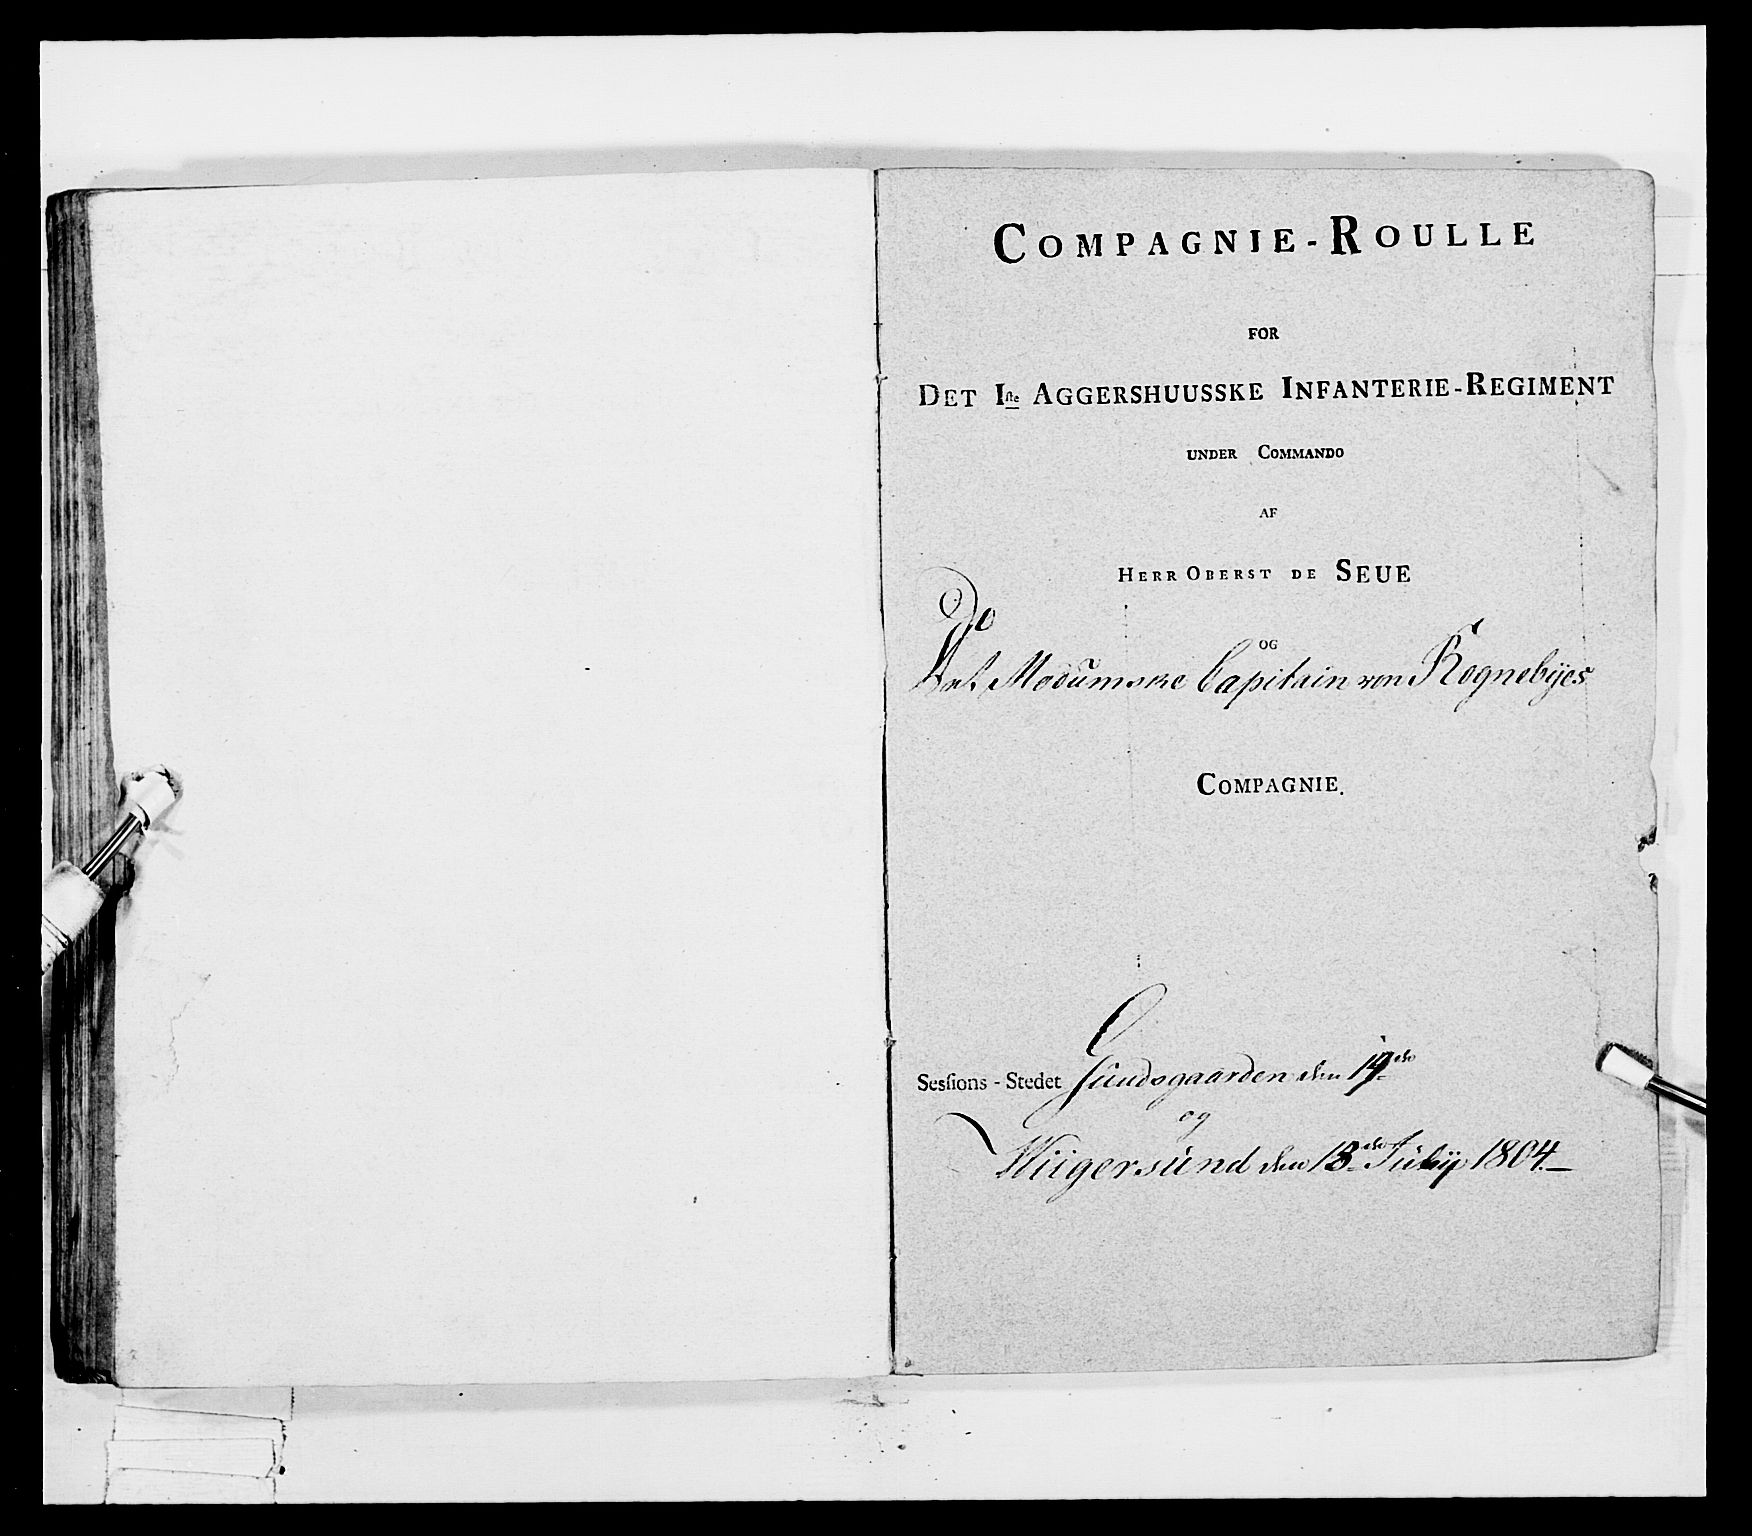 COMPAGNIE-ROULLE
FOR
DET Iste AGGERSHUUSSKE INFANTERIE-REGIMENT
UNDER COMMANDO
AF
HERR OBERST DE SEUE
OG
Det Modumske Capitain von Rognebyes
COMPAGNIE.
Sesſions - Stedet Sundsgaarden den
og
Wiigersund den 13de Julij 1804